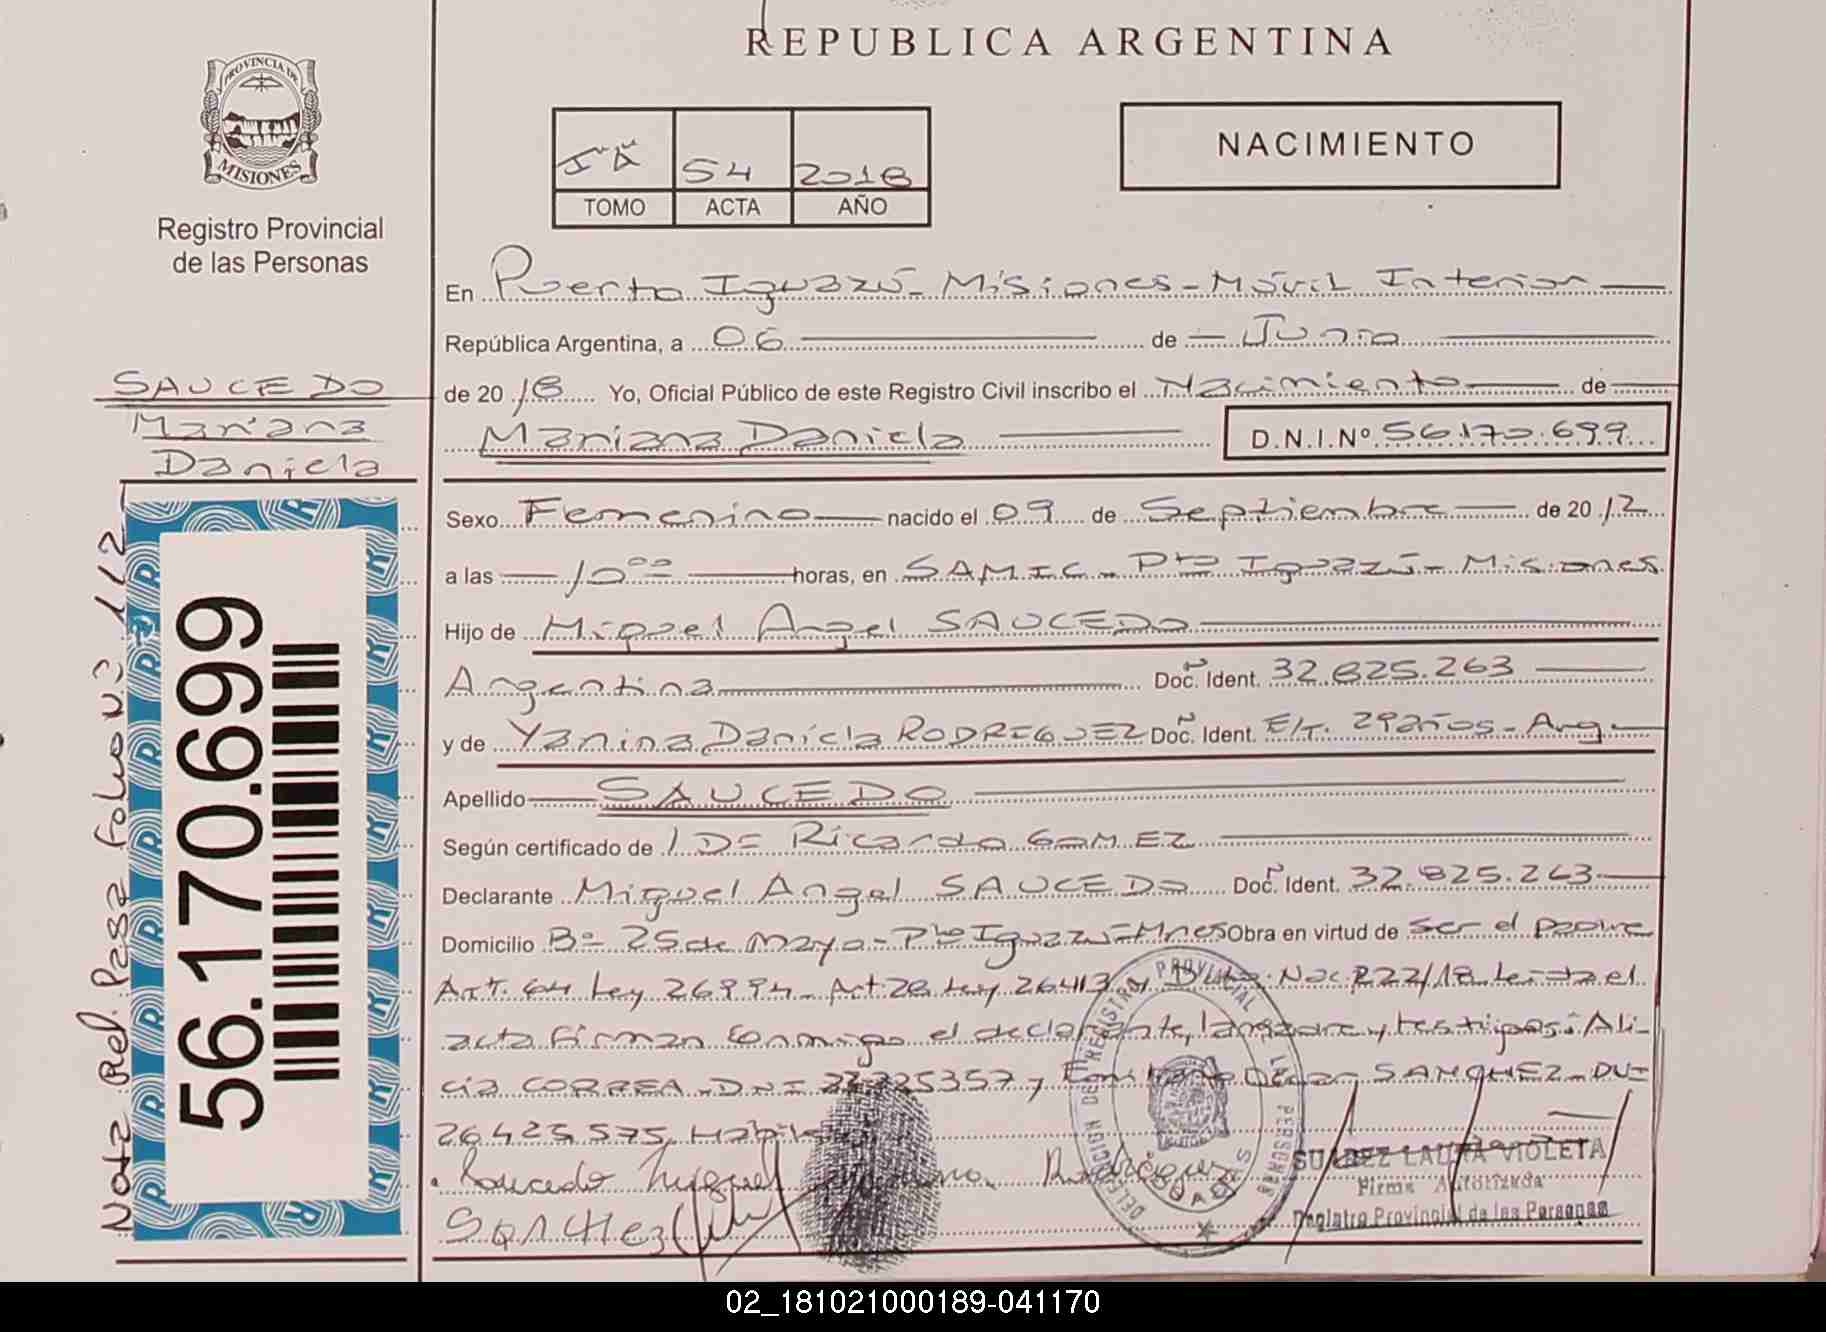 REPUBLICA ARGENTINA
PROVINCIA DE
MISIONES
Registro Provincial
de las Personas
54 2018
TOMO ACTA AÑO
NACIMIENTO
En Puerto Iguazú - Misiones - Móvil Interior
República Argentina, a 06 de Junio
SAUCEDO
Mariana
Daniela
de 20 18 Yo, Oficial Público de este Registro Civil inscribo el Nacimiento de
Mariana Daniela D.N.I.Nº 56.170.699
Sexo Femenino nacido el 09 de Septiembre de 20 12
a las 10ºº horas, en SAMIC - Pto Iguazú - Misiones
Hijo de Miguel Angel SAUCEDO
Argentina Doc. Ident. 32.825.263
y de Yanina Daniela RODRIGUEZ Doc. Ident. E/T. 29 años - Arg.
Apellido SAUCEDO
Según certificado de Ricardo GOMEZ
Declarante Miguel Angel SAUCEDO Doc. Ident. 32.825.263
Domicilio Bº 25 de Mayo - Pto Iguazú - Mnes Obra en virtud de ser el padre
Art. 64 Ley 26994 - Art 28 Ley 26413 y Nac. 222/18. Leída el
acta firman conmigo el declarante, y testigos: Ali-
cia CORREA - DNI y SANCHEZ - DNI
26425575,
Saucedo Miguel Rodriguez
Sanchez
SUAREZ LAURA VIOLETA
Firma Autorizada
Registro Provincial de las Personas
DELEGACION DEL REGISTRO PROVINCIAL PERSONAS
56.170.699
Nota Ref. Pasa Folio Nº 112
02_181021000189-041170